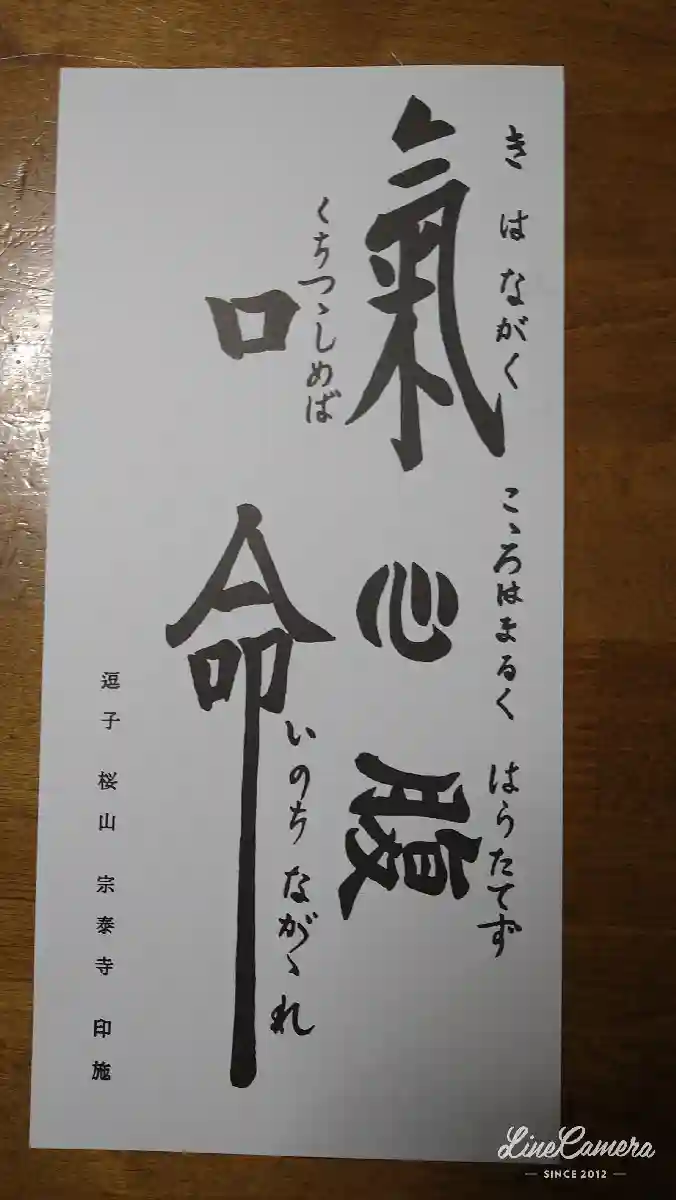 きはながく こゝろはまるく はらたてず
氣心腹
くちつゝしめば いのちながゝれ
口命
逗子 桜山 宗泰寺 印施
LineCamera
SINCE 2012